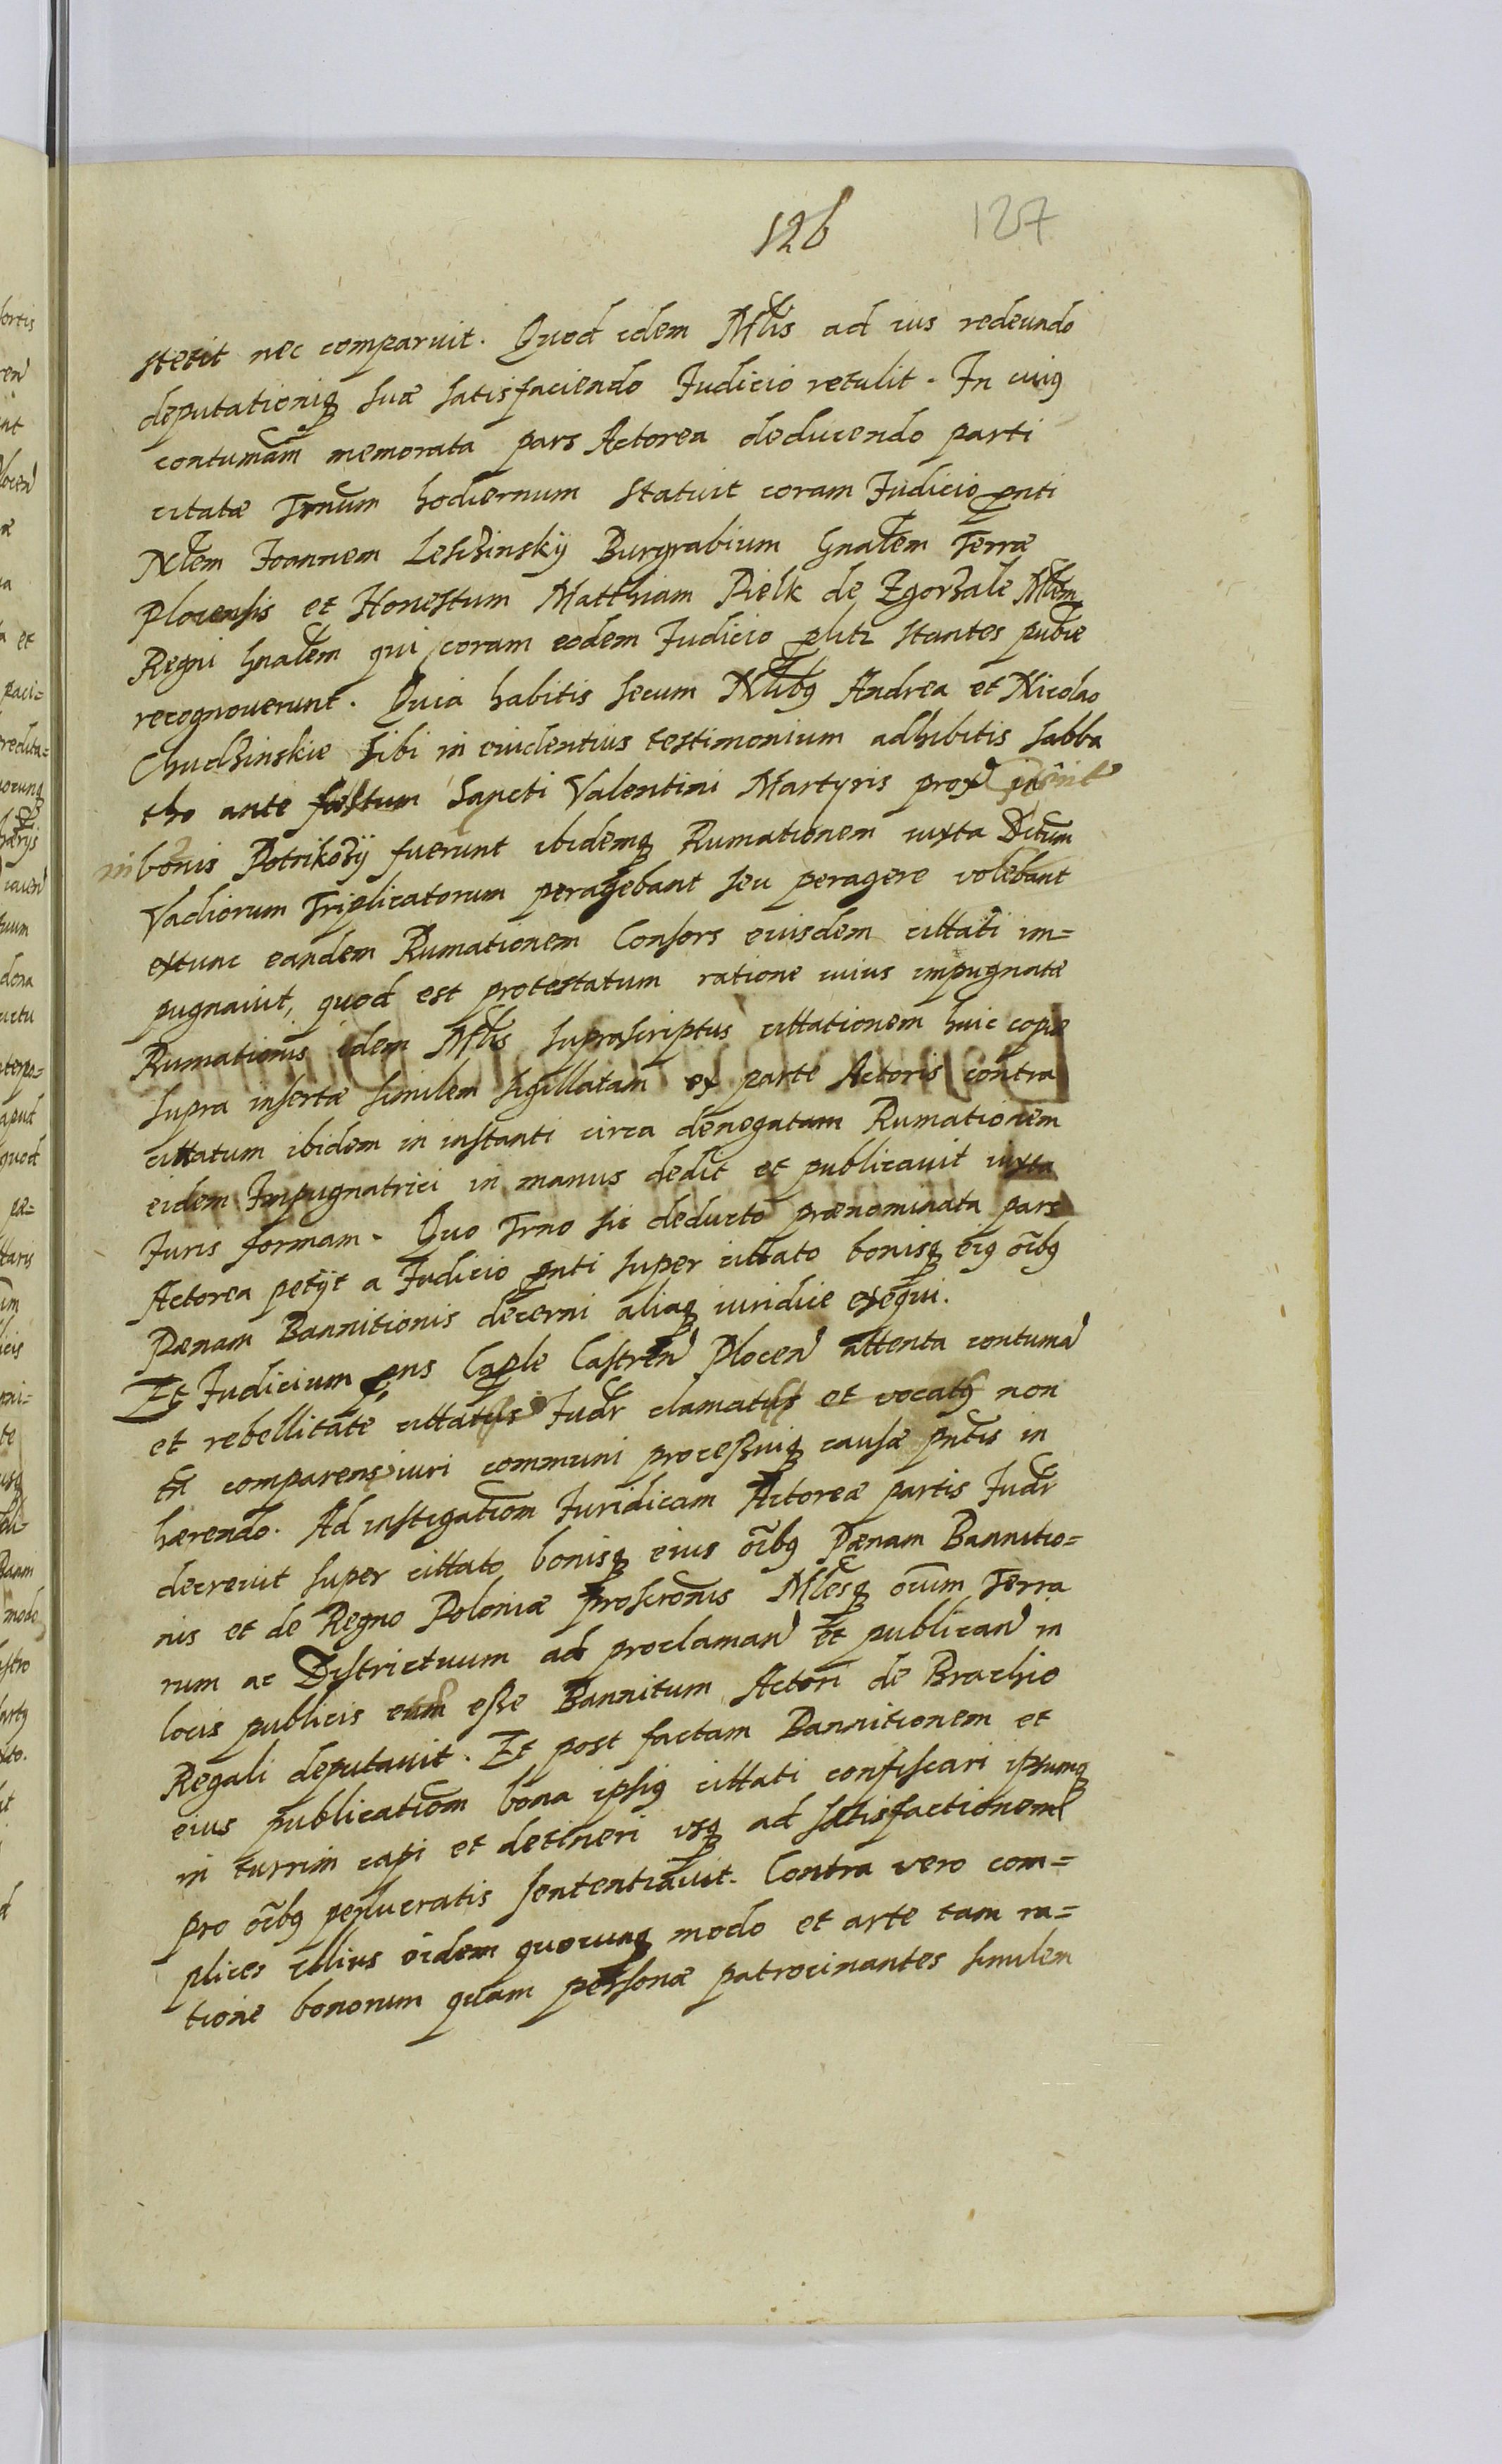 126 127
stetit nec comparuit. Quod idem Mlis ad ius redeundo
deputationiq suæ satisfaciendo Iudicio retulit. In cuiq
contumãm memorata pars Actorea deducendo parti
citatæ Trnum hodiernum statuit coram Iudicio pnti
Nlem Ioannem Lessinskÿ Burgrabium Gnalem Terræ
Plocensis et Honestum Matthiam Pielk de Zgorzale Mlem
Regni gnalem qui coram eodem Iudicio plitr stantes publce
recognoverunt. Quia habitis secum Nlibq Andrea et Nicolao
Chudzinskie sibi in evidentius testimonium adhibitis sabba
tho ante festum Sancti Valentini Martyris prox
in bonis Potrikozÿ fuerunt ibidemq Rumationem iuxta Dctum
Vadiorum Triplicatorum peragebant seu peragere volebant
extunc eandem Rumationem Consors eiusdem cittati im=
pugnavit, quod est protestatum ratione cuius impugnatæ
Rumationis idem Mlis suprascriptus cittationem huic copiæ
supra insertæ similem sigillatam ex parte Actoris contra
cittatum ibidem in instanti circa denegatam Rumationem
eidem Impugnatrici in manus dedit et publicavit iuxta
Iuris formam. Quo Trno sic deducto prænominata pars
Actorea petÿt a Iudicio pnti super cittato bonisq eiq oibq
Pænam Bannitionis decerni aliaq iuridice exequi.
Et Iudicium pns Caple Castren Plocen attenta contuma
et rebellitate cittati Iudr clamatus et vocatq non
tn comparens iuri communi processuiq causæ pntis in
hærendo. Ad instigatiom Iuridicam Actoreæ partis Iudr
decrevit super cittato bonisq eius oibq Pænam Bannitio=
nis et de Regno Poloniæ proscronis Mlesq oium Terra
rum ac Districtuum ad proclaman et publican in
locis publicis eum esse Bannitum Actori de Brachio
Regali deputavit. Et post factam Bannitionem et
eius publicatiom bona ipsiq cittati confiscari ipsumq
in turrim capi et detineri usq ad satisfactionem
pro oibq perlucratis sententiavit. Contra vero com=
plices illius eidem quocunq modo et arte tam ra=
tione bonorum quam personæ patrocinantes similem